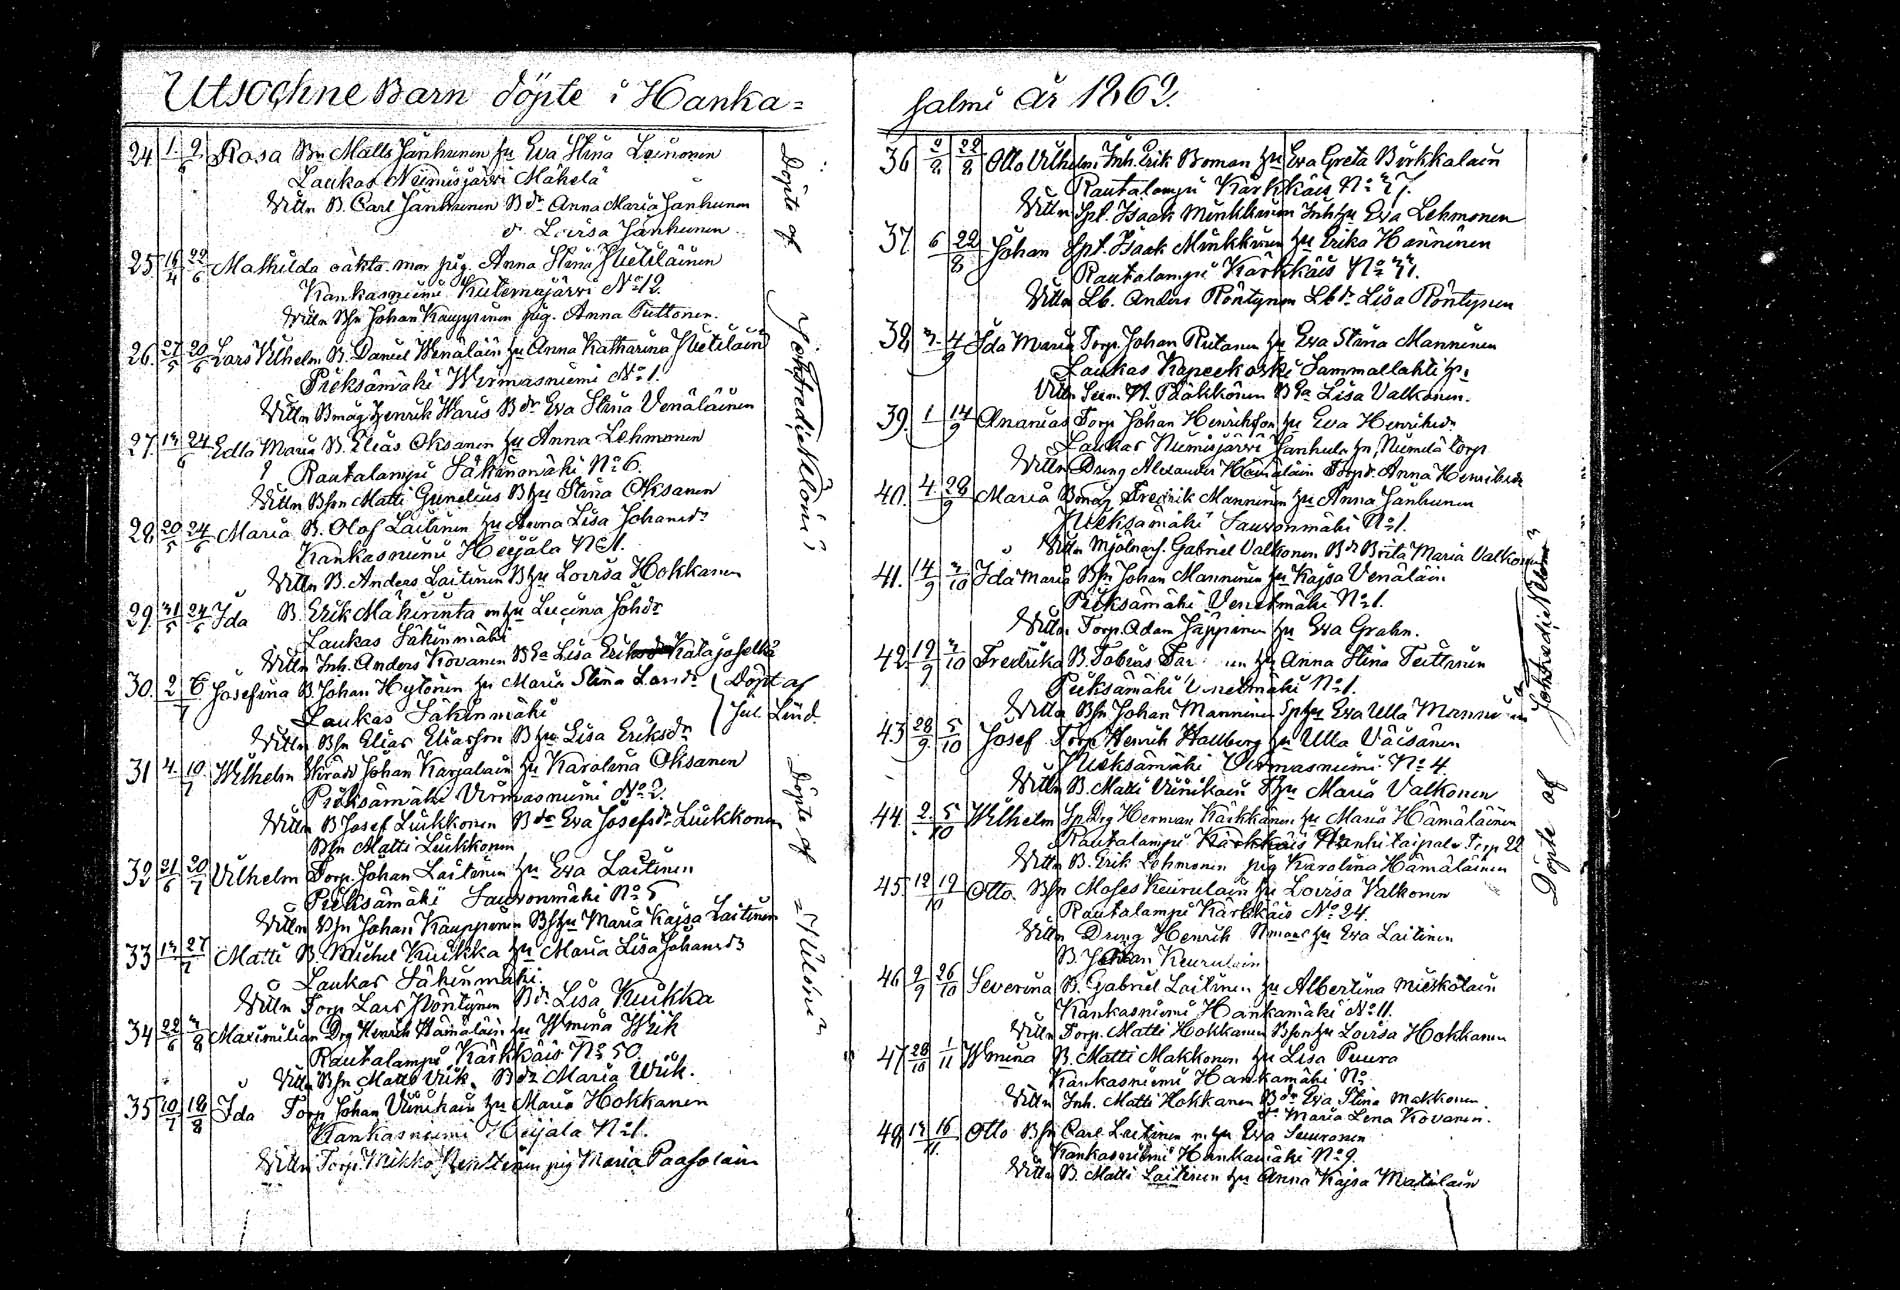 Utsochne Barn döpte i Hanka=
24 1 9/6 Rosa Bn Matts Janhunen hu Eva Stina Leinonen
Laukas Niemisjärvi Mäkelä
Vittn B. Carl Janhunen Bdr Anna Maria Janhunen
d. Lovisa Janhunen
25 16/4 22/6 Mathilda oäkta. mor pig. Anna Stina Hietiläinen
Kankasniemi Kutemajärvi No 12
Vittn Bsn Johan Kauppinen pig. Anna Tuttonen.
26. 27/5 20/6 Lars Vilhelm B. Daniel Wenäläin hu Anna Katharina Hietiläin
Pieksämäki Wirmasniemi No 1.
Vittn Bmåg Henrik Waris Bdr Eva Stina Venäläinen
27. 13 24/6 Edla Maria B. Elias Oksanen hu Anna Lehmonen
Rautalampi Säkinmäki No 6.
Vittn Bsn Matti Gunelius Bhu Stina Oksanen
28 20/5 24/6 Maria B. Olof Laitinen hu Anna Lisa Johansdr
Kankasniemi Heijala No 1.
Vittn B. Anders Laitinen Bhu Lovisa Hokkanen
29. 31/5 24/6 Ida B. Erik Mäkirinta m hu Lucina Johdr
Laukas Säkinmäki
Vittn Inh. Anders Kovanen Bea Lisa Katajaselkä
30. 2 6/7 Josefina B. Johan Hytönen hu Maria Stina Larsdr Döpt af
Laukas Säkinmäki Jul. Lind.
Vittn Bsn Elias Eliasson Bhu Lisa Eriksdr
31 4. 10/7 Wilhelm Johan Karjalain hu Karolina Oksanen
Pieksämäki Virmasniemi No 2.
Vittn B Josef Liukkonen Bdr Eva Josefsdr Liukkonen
Bsn Matti Liukkonen
32 21/6 20/7 Vilhelm Torp. Johan Laitinen hu Eva Laitinen
Pieksämäki Sauvonmäki No 5
Vittn Bsn Johan Kauppinen Bshu Maria Kajsa Laitinen
33 13 27/7 Matti B. Michel Kuikka hu Maria Lisa Johansdr
Laukas Säkinmäki.
Vittn Torp Lars Pöntynen Bdr Lisa Kuikka
34 22/6 3/8 Maximilian Drg Henrik Hämäläin hu Wmina Wiik
Rautalampi Kärkkäis No 50.
Vittn Bsn Matts Viik. Bdr Maria Wiik.
35 10/7 18/8 Ida Torp Johan Viinikain hu Maria Hokkanen
Kankasniemi Heijala No 1.
Vittn Torp. Mikko pig Maria Paasolain
Döpte af Joh Fredie Nelonius
Döpte af
salmi år 1862.
36 2/8 22/8 Otto Vilhelm Inh. Erik Boman hu Eva Greta Birkkalain
Rautalampi Kärkkäis No 47.
Vittn Spl. Isaak Minkkinen Inhhu Eva Lehmonen
37 6 22/8 Johan Spl. Isaak Minkkinen hu Erika Hänninen
Rautalampi Kärkkäis No 47.
Vittn Lb. Anders Pöntynen Lbdr Lisa Pöntynen
38 3. 4/9 Ida Maria Torp. Johan Rutanen hu Eva Stina Manninen
Laukas Kapeekoski Sammallahti hs
Vittn N. Pääkkönen Bea Lisa Valkonen.
39. 1 14/9 Ananias Torp Johan Henriksson hu Eva Henriksdr
Laukas Niemisjärvi Janhula hs, Niemelä torp
Vittn Dreng Alexander Hämäläin Torpdr. Anna Henriksdr
40. 4. 28/9 Maria Bmåg Fredrik Manninen hu Anna Janhunen
Pieksämäki Sauvonmäki No 1.
Vittn Mjölnars. Gabriel Valkonen Bdr Brita Maria Valkonen
41. 14/9 3/10 Ida Maria Bsn Johan Manninen hu Kajsa Venäläin
Pieksämäki Venetmäki No 1.
Vittn Torp. Adam Jäppinen hu Eva Grahn.
42 19/9 3/10 Fredrika B. Tobias hu Anna Stina Teittinen
Pieksämäki Venetmäki No 1.
Vittn Bsn Johan Manninen Sphu Eva Ulla Manninen
43 28/9 5/10 Josef Torp Henrik Hallberg hu Ulla Väisänen
Pieksämäki Virmasniemi No 4
Vittn B. Matti Viinikain Thu Maria Valkonen
44. 2. 5/10 Wilhelm Sp. Drg Herman Kärkkäinen hu Maria Hämäläinen
Rautalampi Kärkkäis Torp 22
Vittn B. Erik Lehmonen pig Karolina Hämäläinen
45. 12 19/10 Otto. Bsn Moses Keurulain hu Lovisa Valkonen
Rautalampi Kärkkäis No 24.
Vittn Dreng Henrik hu Eva Laitinen
B. Johan Keurulain
46 9/9 26/10 Severina B. Gabriel Laitinen hu Albertina Mieskolain
Kankasniemi Hankamäki No 11.
Vittn Torp. Matti Hokkanen Bsonhu Lovisa Hokkanen
47 28/10 1/11 Wmina B. Matti Makkonen hu Lisa Puura
Kankasniemi Hankamäki No
Vittn Inh. Matti Hokkanen Bdr Eva Stina Makkonen.
dr Maria Lena Kovanen.
48 13 16/11. Otto Bsn Carl Laitinen m hu Eva Seuronen
Kankasniemi Hankamäki No 9.
Vittn B. Matti Laitinen hu Anna Kajsa Matilain
Döpte af Joh Fredie Nelonius